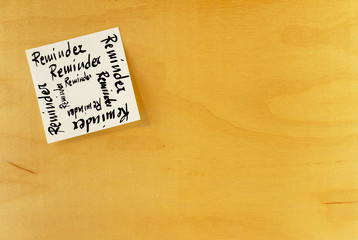 Reminder
Reminder
Reminder
Reminder
Reminder
Reminder
Reminder
Reminder
Reminder
Reminder
Reminder